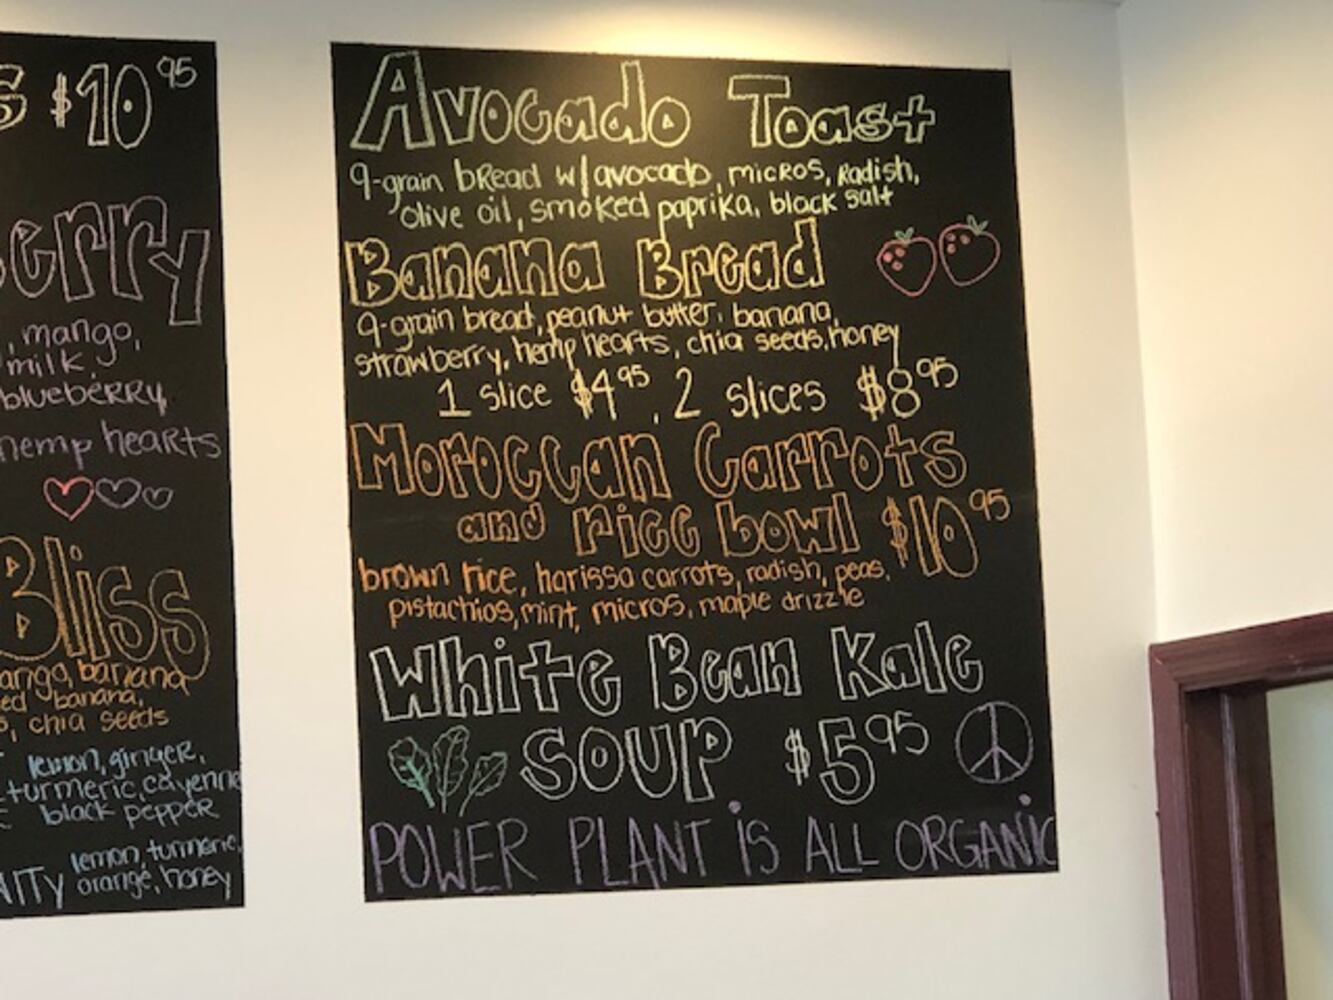 $10.95
erry
, mango,
milk,
blueberry,
hemp hearts
Bliss
ango, banana
banana,
, chia seeds
lemon, ginger,
turmeric, cayenne
black pepper
lemon, turmeric,
orange, honey
Avocado Toast
9-grain bread w/avocado, micros, radish,
olive oil, smoked paprika, black salt
Banana Bread
9-grain bread, peanut butter, banana,
strawberry, hemp hearts, chia seeds, honey
1 slice $4.95, 2 slices $8.95
Moroccan Carrots
and rice bowl $10.95
brown rice, harissa carrots, radish, peas,
pistachios, mint, micros, maple drizzle
White Bean Kale
SOUP $5.95
POWER PLANT iS ALL ORGANiC